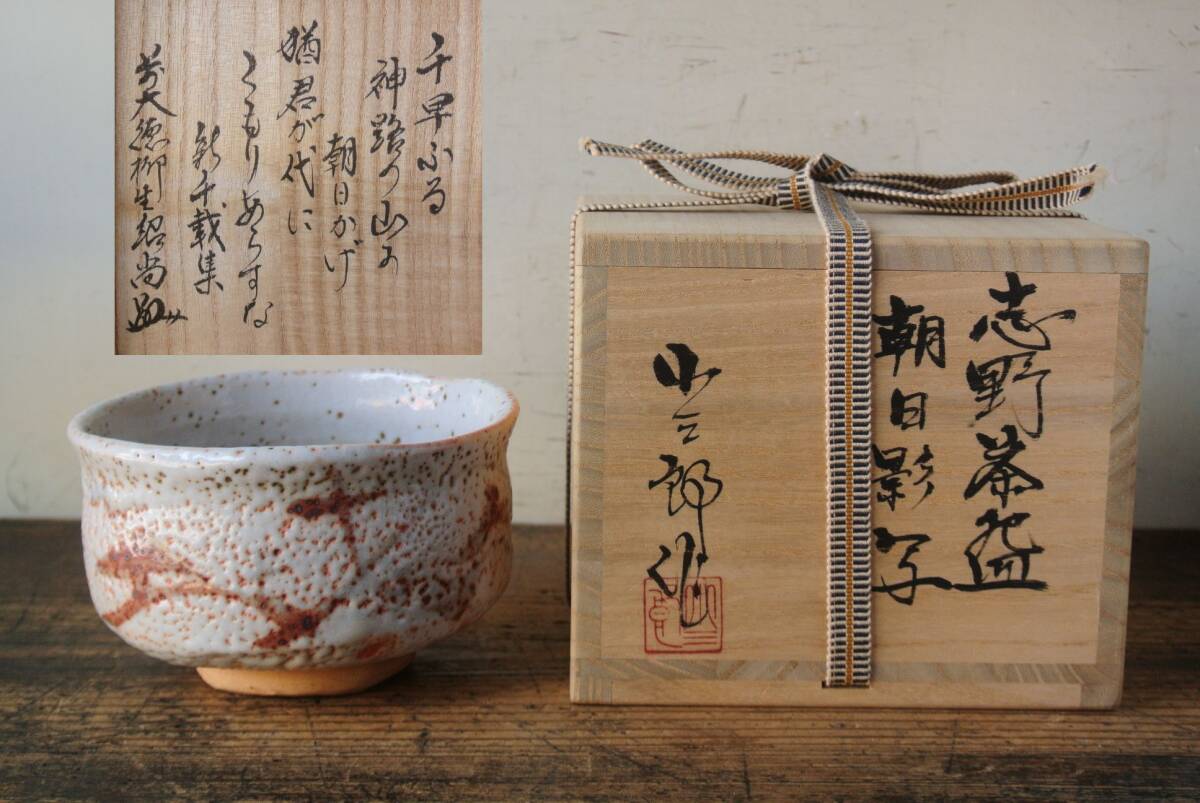 千早ふる
神路の山の
朝日かげ
猶君が代に
くもりあらすな
新千載集
前大徳柳生紹尚
志野茶盌
朝日影写
山三郎作